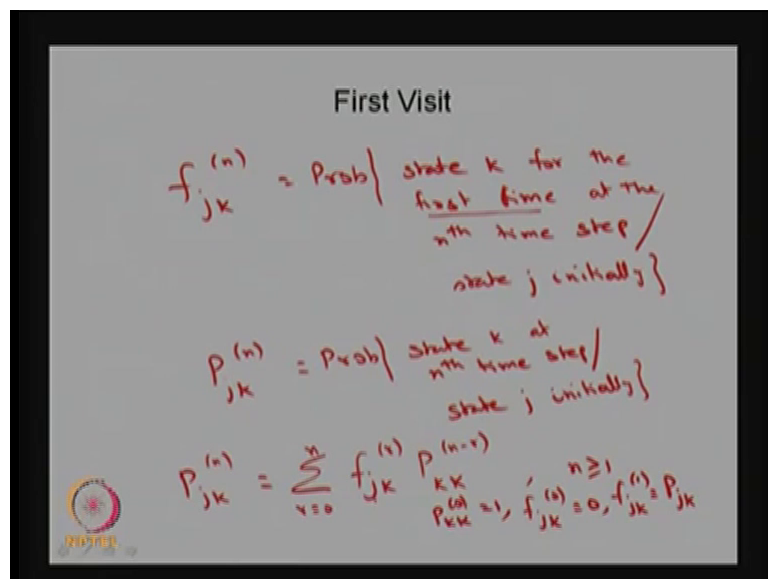 First Visit
f_{jk}^{(n)} = Prob{ state k for the
first time at the
n^{th} time step /
state j initially }
P_{jk}^{(n)} = Prob{ state k at
n^{th} time step /
state j initially }
P_{jk}^{(n)} = \sum_{r=0}^{n} f_{jk}^{(r)} P_{kk}^{(n-r)}, n ≥ 1
P_{kk}^{(0)} = 1, f_{jk}^{(0)} = 0, f_{jk}^{(1)} = P_{jk}
NPTEL